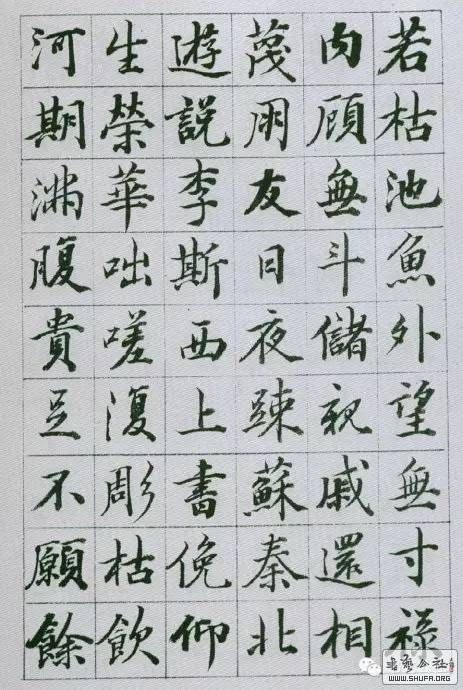 若枯池魚外望無寸祿
内顧無斗儲親戚還相
蔑朋友日夜踈蘇秦北
遊說李斯西上書俛仰
生榮華咄嗟復彫枯飲
河期滿腹貴足不願餘
書藝公社
WWW.SHUFA.ORG